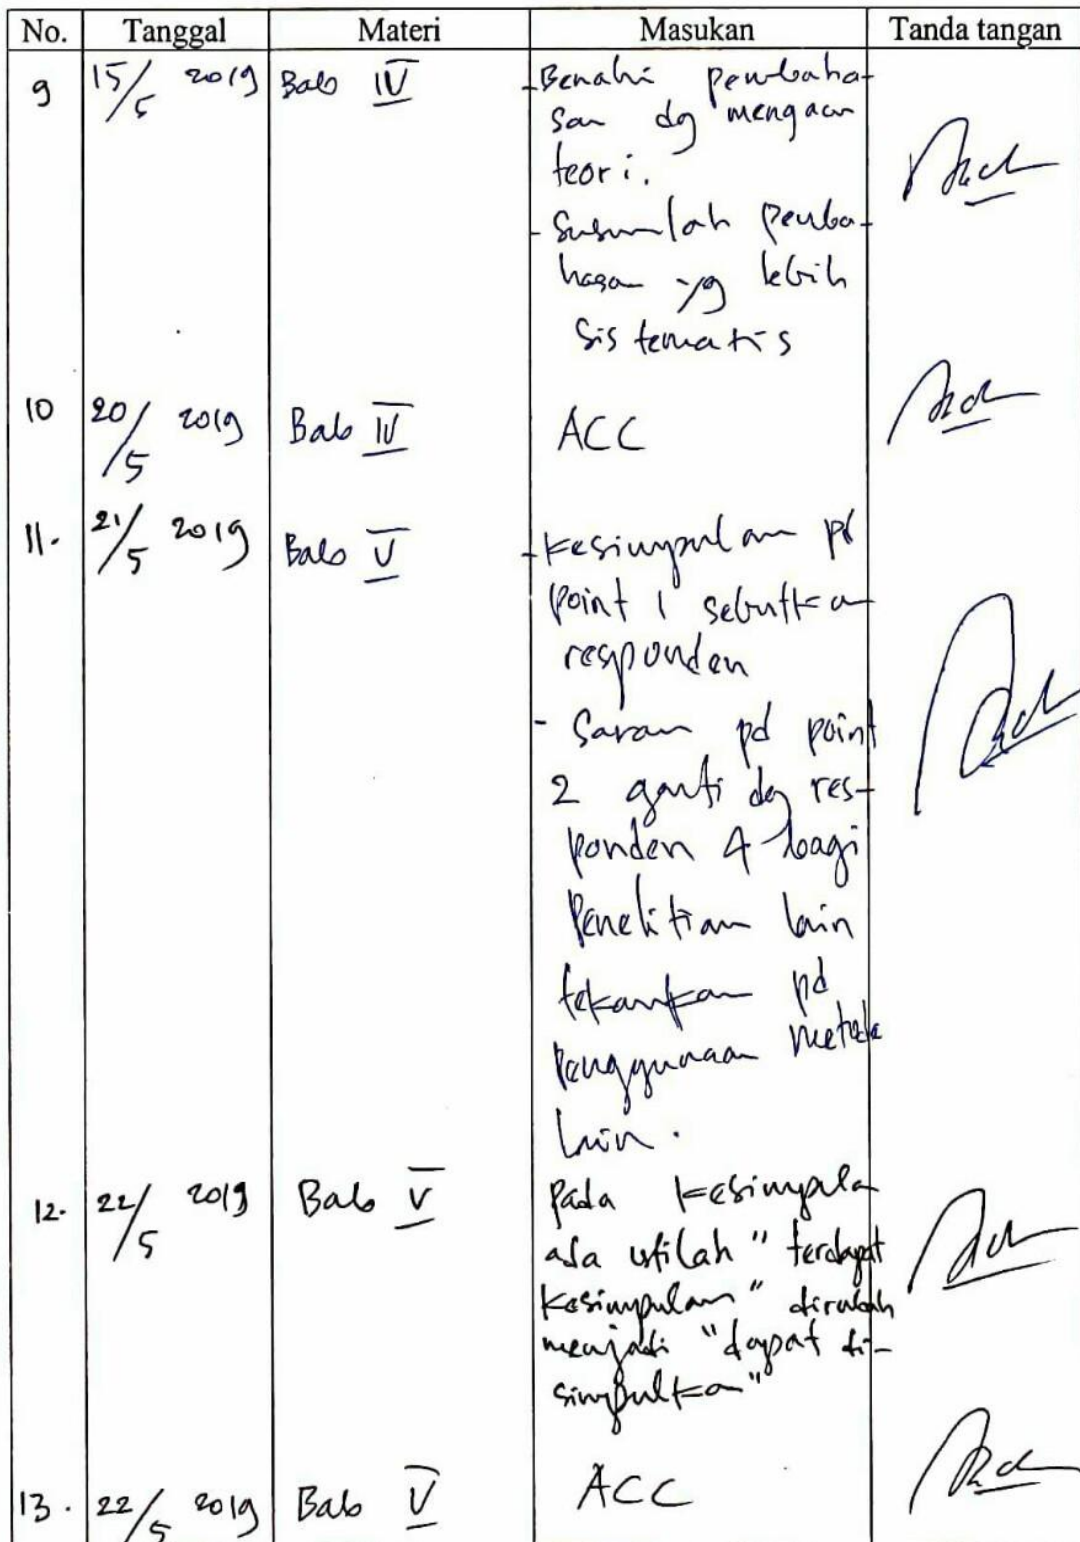 No. Tanggal Materi Masukan Tanda tangan
9 15/5 2019 Bab IV - Benahi pembaha-
san dg mengacu
teori.
- Susunlah pemba-
hasan yg lebih
sistematis
10 20/5 2019 Bab IV ACC
11. 21/5 2019 Bab V - Kesimpulan pd
point 1 sebutkan
responden
- Saran pd point
2 ganti dg res-
ponden & bagi
Penelitian lain
tekankan pd
penggunaan metode
lain.
12. 22/5 2019 Bab V Pada kesimpulan
ada istilah "terdapat
kesimpulan" dirubah
menjadi "dapat di-
simpulkan"
13. 22/5 2019 Bab V ACC